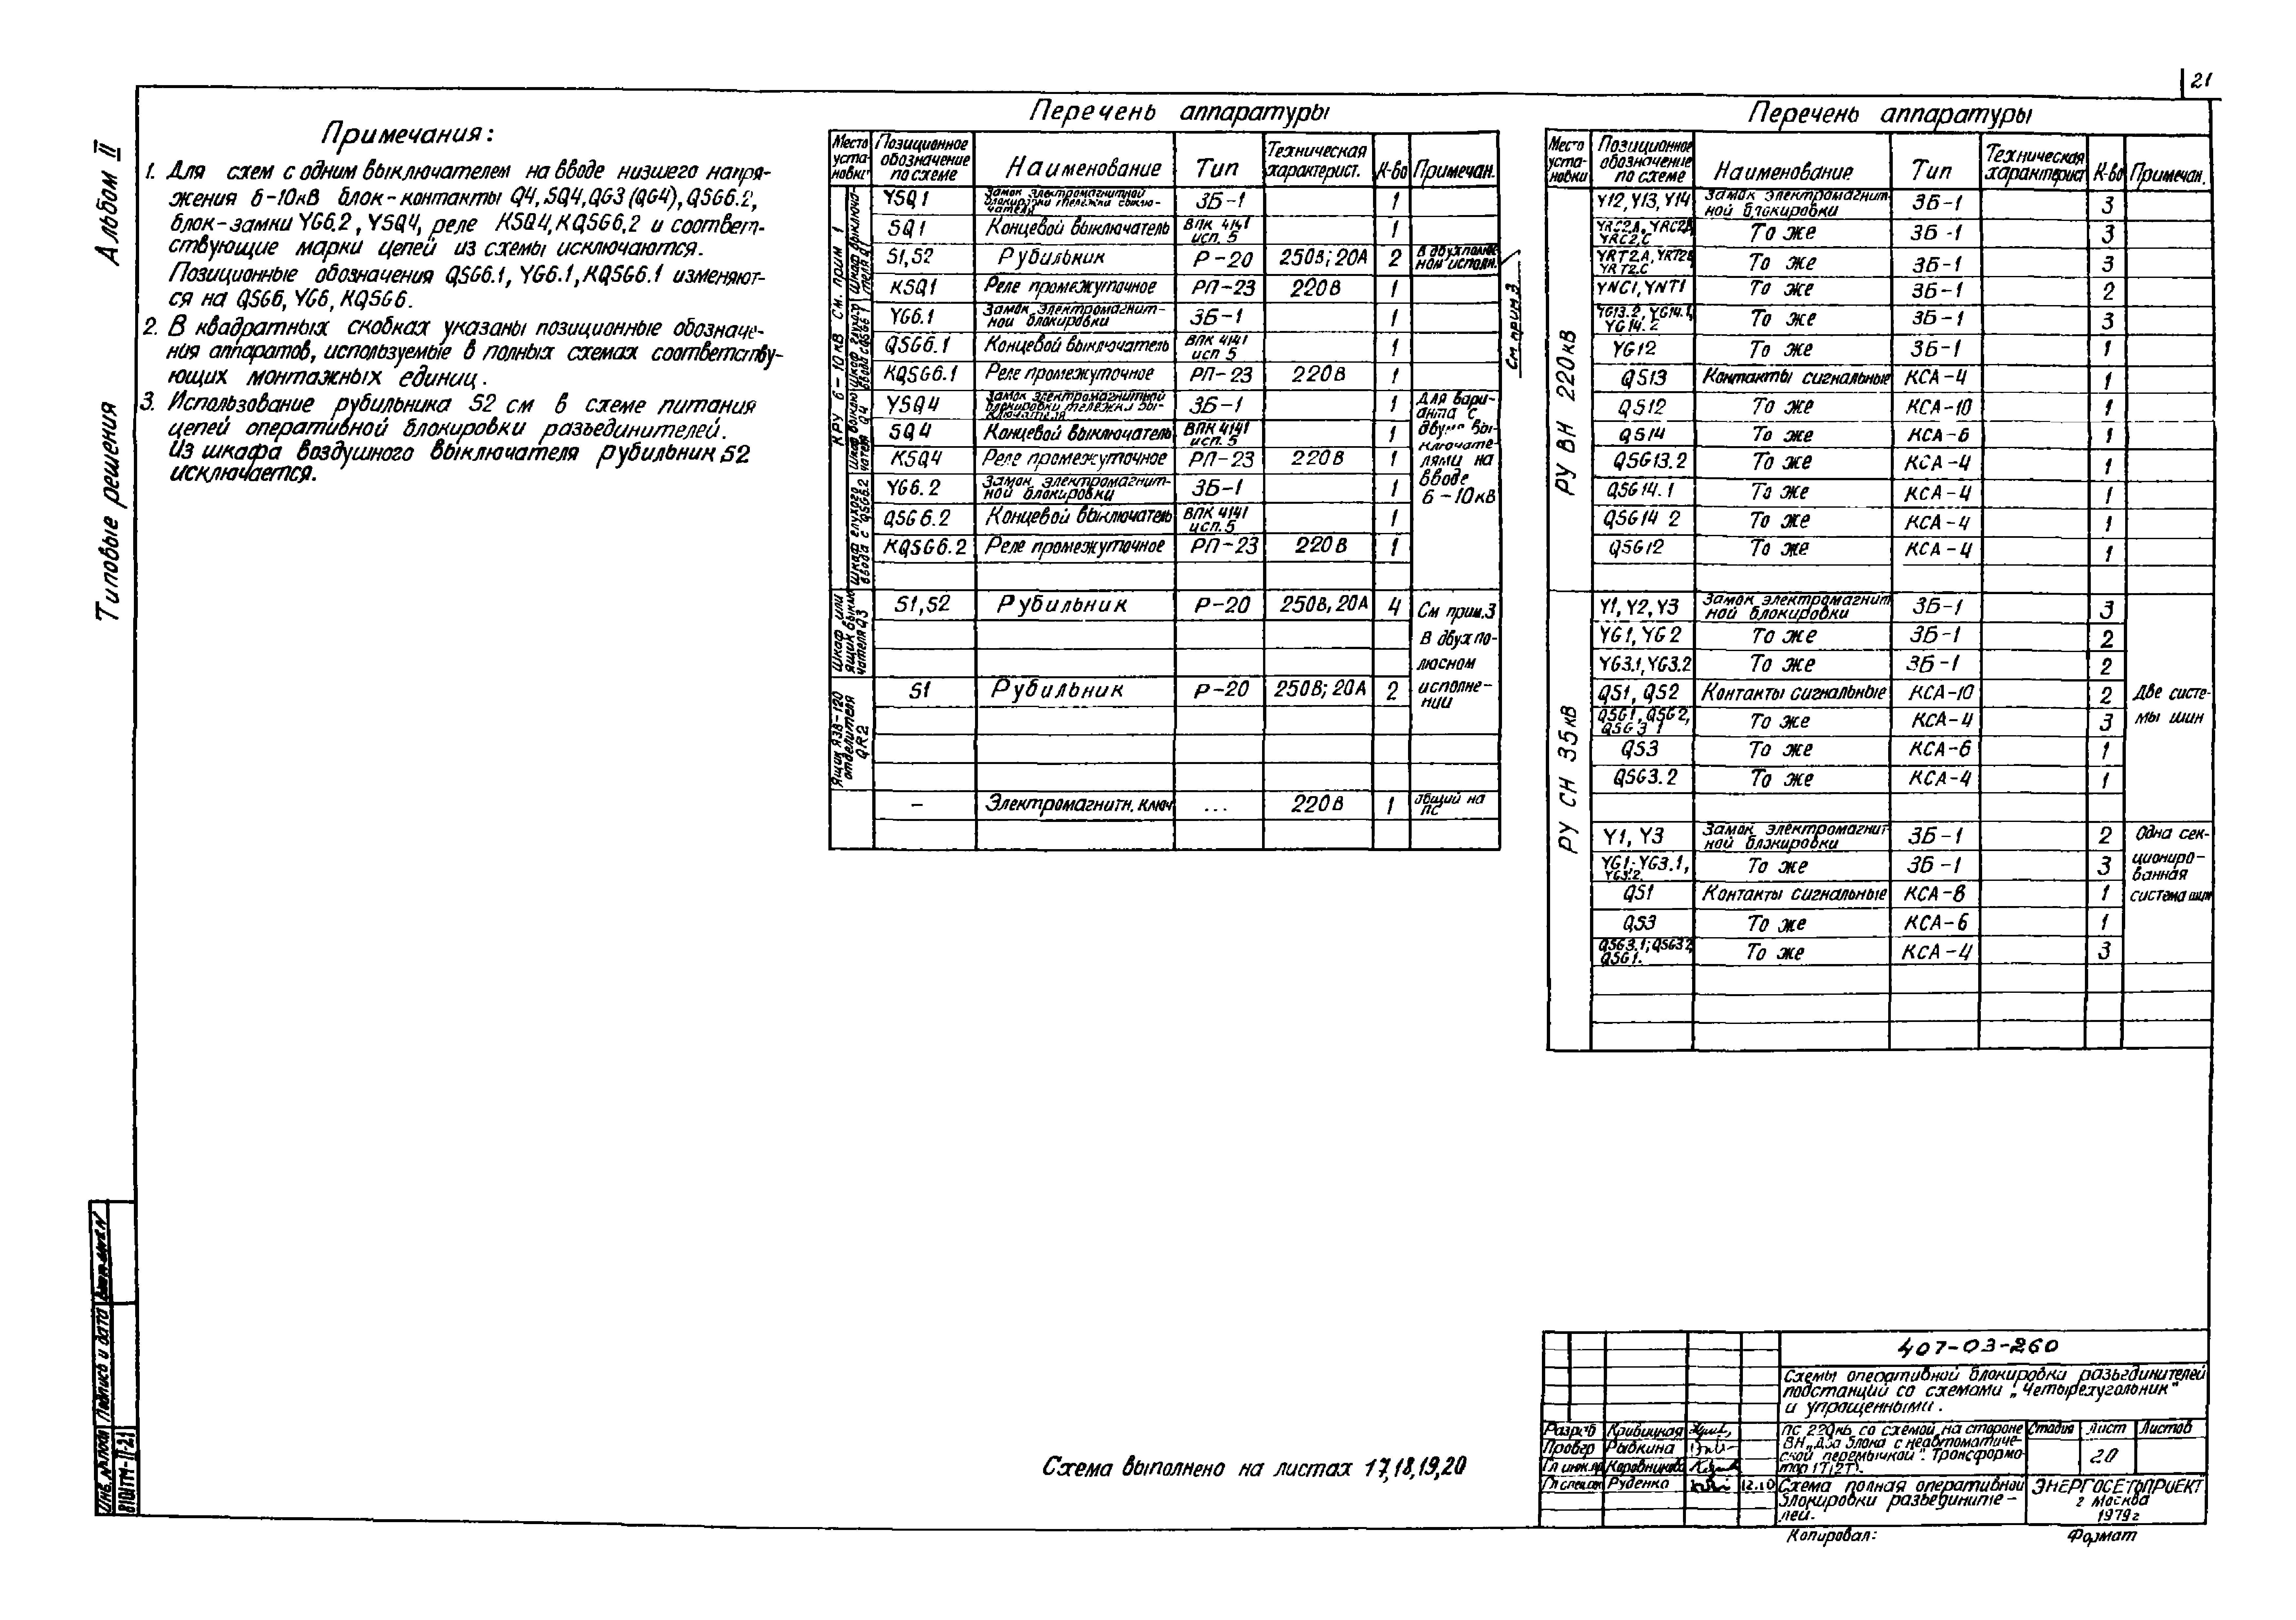 21
Альбом II
Типовые решения
Примечания:
1. Для схем с одним выключателем на вводе низшего напря-
жения 6-10кВ блок-контакты Q4, SQ4, QG3 (QG4), QSG6.2,
блок-замки YG6.2, YSQ4, реле KSQ4, KQSG6.2 и соответ-
ствующие марки цепей из схемы исключаются.
Позиционные обозначения QSG6.1, YG6.1, KQSG6.1 изменяют-
ся на QSG6, YG6, KQSG6.
2. В квадратных скобках указаны позиционные обозначе-
ния аппаратов, используемые в полных схемах соответству-
ющих монтажных единиц.
3. Использование рубильника S2 см в схеме питания
цепей оперативной блокировки разъединителей.
Из шкафа воздушного выключателя рубильник S2
исключается.
Перечень аппаратуры
Место установки | Позиционное обозначение по схеме | Наименование | Тип | Техническая характерист. | К-во | Примечан.
КРУ 6-10 кВ см. прим 1
YSQ1 | Замок электромагнитной блокировки тележки выключателя | ЗБ-1 | 1
SQ1 | Концевой выключатель | ВПК 4141 исп. 5 | 1
S1, S2 | Рубильник | Р-20 | 250В; 20А | 2 | В двухполюсном исполн.
KSQ1 | Реле промежуточное | РП-23 | 220В | 1
YG6.1 | Замок электромагнитной блокировки | ЗБ-1 | 1
QSG6.1 | Концевой выключатель | ВПК 4141 исп 5 | 1
KQSG6.1 | Реле промежуточное | РП-23 | 220В | 1
YSQ4 | Замок электромагнитной блокировки тележки выключателя | ЗБ-1 | 1 | Для вари-
SQ4 | Концевой выключатель | ВПК 4141 исп. 5 | 1 | анта с двумя вы-
KSQ4 | Реле промежуточное | РП-23 | 220В | 1 | ключате-лями на
YG6.2 | Замок электромагнитной блокировки | ЗБ-1 | 1 | вводе 6-10кВ
QSG6.2 | Концевой выключатель | ВПК 4141 исп. 5 | 1
KQSG6.2 | Реле промежуточное | РП-23 | 220В | 1
Шкаф глухого ввода с QSG6.2
Шкаф или ящик выключателя Q3
S1, S2 | Рубильник | Р-20 | 250В, 20А | 4 | См прим.3
В двухпо-
люсном
Ящик ЯЗВ-120 отделителя QR2
S1 | Рубильник | Р-20 | 250В; 20А | 2 | исполне-нии
- | Электромагнитн. ключ | ... | 220В | 1 | общий на ПС
См прим.3
Перечень аппаратуры
Место установки | Позиционное обозначение по схеме | Наименование | Тип | Техническая характерист | К-во | Примечан.
РУ ВН 220 кВ
Y12, Y13, Y14 | Замок электромагнитной блокировки | ЗБ-1 | 3
YRC2.A, YRC2.B, YRC2.C | То же | ЗБ-1 | 3
YRT2.A, YRT2.B, YRT2.C | То же | ЗБ-1 | 3
YNC1, YNT1 | То же | ЗБ-1 | 2
YG13.2, YG14.1, YG14.2 | То же | ЗБ-1 | 3
YG12 | То же | ЗБ-1 | 1
QS13 | Контакты сигнальные | КСА-4 | 1
QS12 | То же | КСА-10 | 1
QS14 | То же | КСА-6 | 1
QSG13.2 | То же | КСА-4 | 1
QSG14.1 | То же | КСА-4 | 1
QSG14 2 | То же | КСА-4 | 1
QSG12 | То же | КСА-4 | 1
РУ СН 35кВ
Y1, Y2, Y3 | Замок электромагнитной блокировки | ЗБ-1 | 3
YG1, YG2 | То же | ЗБ-1 | 2
YG3.1, YG3.2 | То же | ЗБ-1 | 2
QS1, QS2 | Контакты сигнальные | КСА-10 | 2 | Две систе-
QSG1, QSG2, QSG3 1 | То же | КСА-4 | 3 | мы шин
QS3 | То же | КСА-6 | 1
QSG3.2 | То же | КСА-4 | 1
Y1, Y3 | Замок электромагнитной блокировки | ЗБ-1 | 2 | Одна сек-
YG1; YG3.1, YG3.2. | То же | ЗБ-1 | 3 | циониро-ванная
QS1 | Контакты сигнальные | КСА-8 | 1 | система шин
QS3 | То же | КСА-6 | 1
QSG3.1; QSG3.2, QSG1. | То же | КСА-4 | 3
Схема выполнено на листах 17,18,19,20
407-03-260
Схемы оперативной блокировки разъединителей
подстанций со схемами „Четырехугольник"
и упрощенными.
Разраб Кривицкая
Провер Рыбкина
Гл спецал Руденко 12.10
ПС 220кВ со схемой на стороне
ВН „Два блока с неавтоматиче-
ской перемычкой". Трансформа-
тор 1Т(2Т).
Стадия Лист Листов
20
Схема полная оперативной
блокировки разъедините-
лей.
ЭНЕРГОСЕТЬПРОЕКТ
г Москва
1979г
Копировал: Формат
Инв. № подл Подпись и дата
8101ТМ-II-21